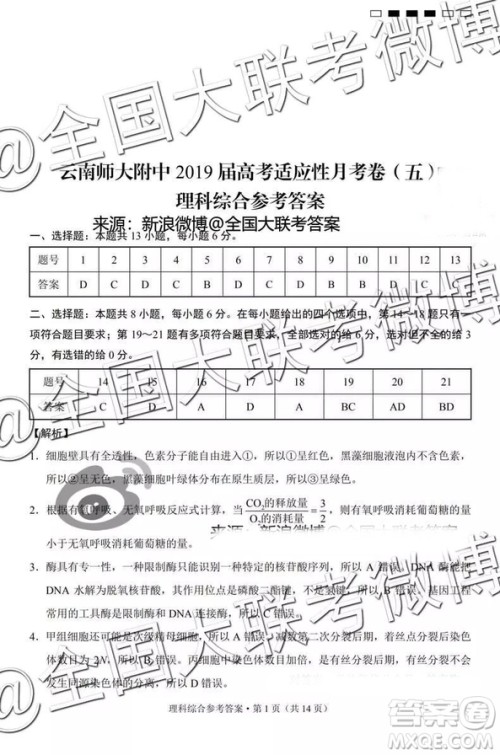 云南师大附中 2019 届高考适应性月考卷（五）
理科综合参考答案
来源：新浪微博@全国大联考答案
一、选择题：本题共 13 小题，每小题 6 分。
题号 1 2 3 4 5 6 7 8 9 10 11 12 13
答案 D C D C B D C D B C D C C
二、选择题：本题共 8 小题，每小题 6 分。在每小题给出的四个选项中，第 14～18 题只有一
项符合题目要求；第 19～21 题有多项符合题目要求，全部选对的给 6 分，选对但不全的给 3
分，有选错的给 0 分。
题号 14 15 16 17 18 19 20 21
答案 C D A D A BC AD BD
【解析】
1．细胞壁具有全透性，色素分子能自由通过，所以①呈红色，黑藻细胞液泡内不含色素，
所以②呈无色，黑藻细胞叶绿体分布在原生质层，所以③呈绿色。
2．根据有氧呼吸、无氧呼吸反应式计算，当 CO₂的释放量/O₂的消耗量 = 3/2，有氧呼吸消耗葡萄糖的量
来源：新浪微博@全国大联考答案
小于无氧呼吸消耗葡萄糖的量。
3．酶具有专一性，一种限制酶只能识别一种特定的核苷酸序列，所以 A 错误。DNA 酶能将
DNA 水解为脱氧核苷酸，其作用位点是磷酸二酯键，不是氢键，所以 B 错误。基因工程
常用的工具酶是限制酶和 DNA 连接酶，所以 C 错误。
4．甲组细胞还可能是次级精母细胞，所以 A 错误。减数第二次分裂后期，着丝点分裂后染色
体数目为 2N，所以 B 错误。丙组细胞中染色体数目加倍，是有丝分裂后期，不可能发
生同源染色体的分离，所以 D 错误。
理科综合参考答案·第 1 页（共 14 页）
@全国大联考微博
@全国大联考微博
@全国大联考微博
答案圈
MXQE.COM